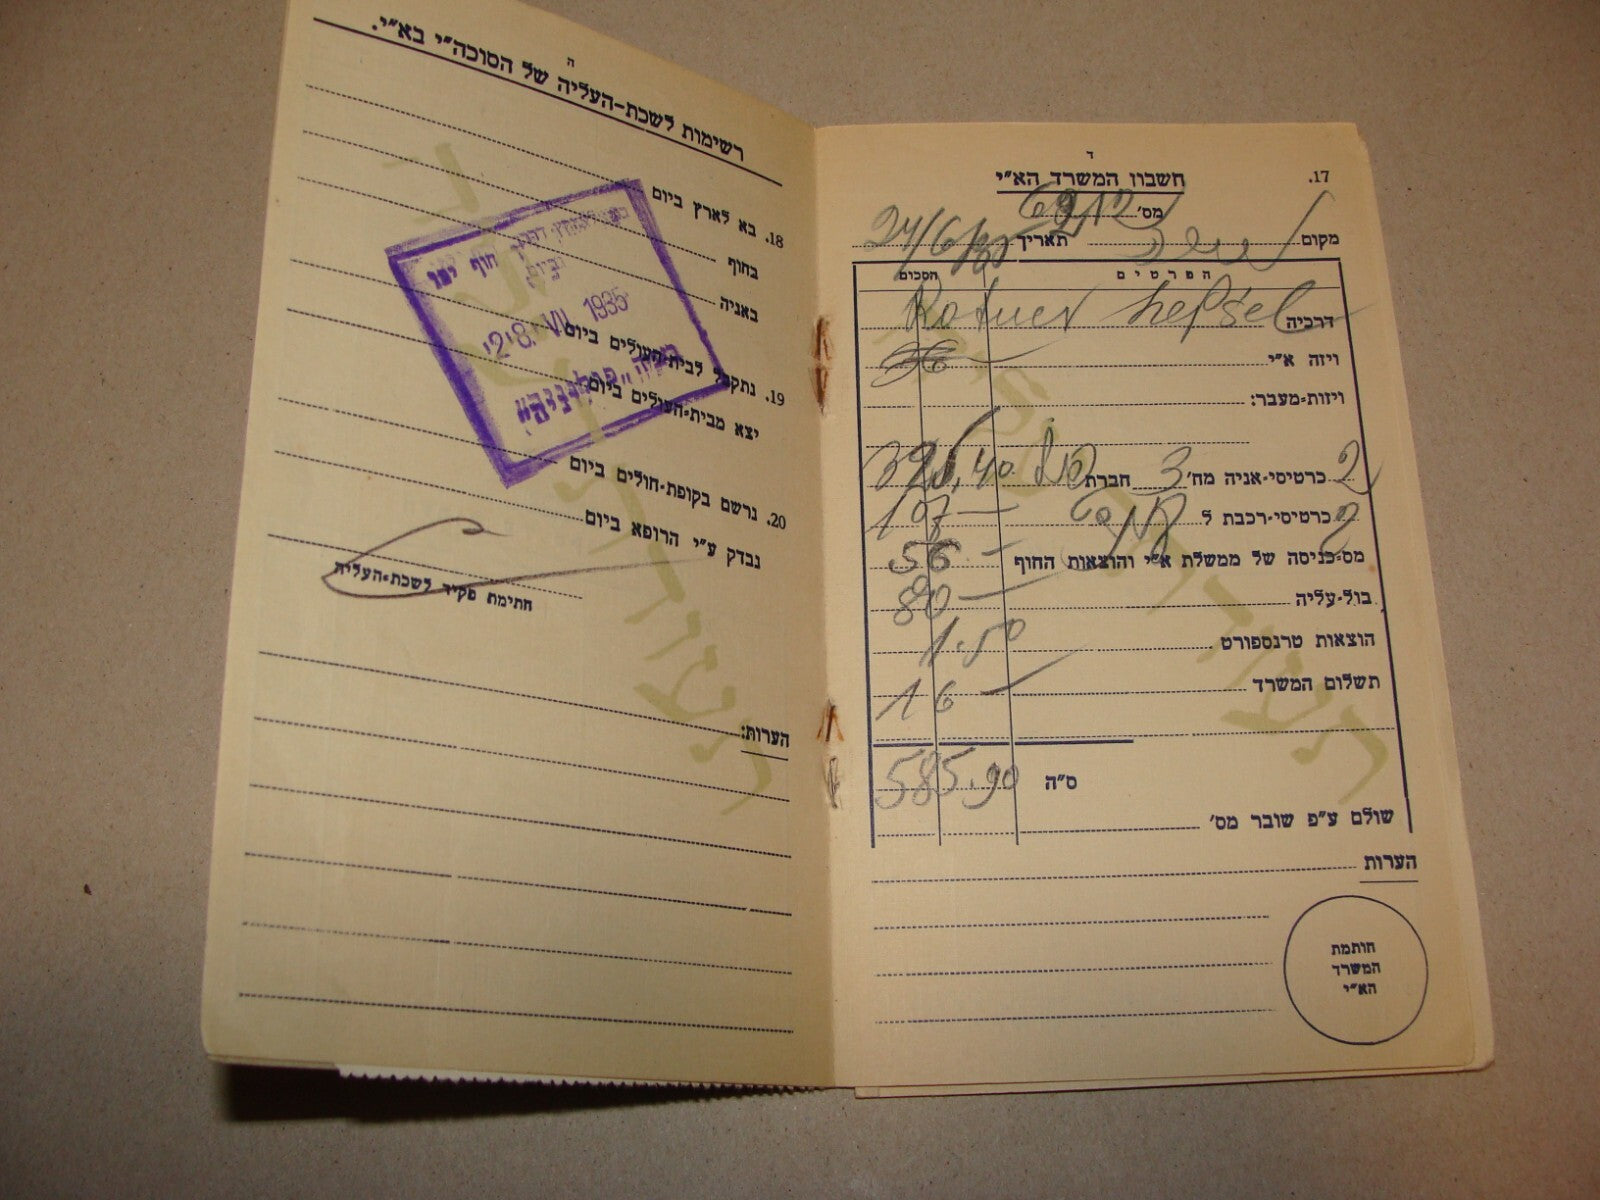 ד
17.
חשבון המשרד הא״י
מס׳
מקום תאריך 24/6/35
הפרטים הסכום
דרכיה
ויזה א״י
ויזות-מעבר:
2 כרטיסי-אניה מח׳ 3 חברת 395,40
2 כרטיסי-רכבת ל 107 —
מס-כניסה של ממשלת א״י והוצאות החוף 56 —
בול-עליה
הוצאות טרנספורט 1.50
תשלום המשרד 16 —
ס״ה 585.90
שולם ע״פ שובר מס׳
הערות
חותמת
המשרד
הא״י
ה
רשימות לשכת-העליה של הסוכה״י בא״י.
18. בא לארץ ביום
בחוף
באניה
19. נתקבל לבית-העולים ביום
יצא מבית-העולים ביום
20. נרשם בקופת-חולים ביום
נבדק ע״י הרופא ביום
חתימת פקיד לשכת-העליה
הערות:
דרך חוף יפו
ביום
28. VII 1935
״פולוניה״